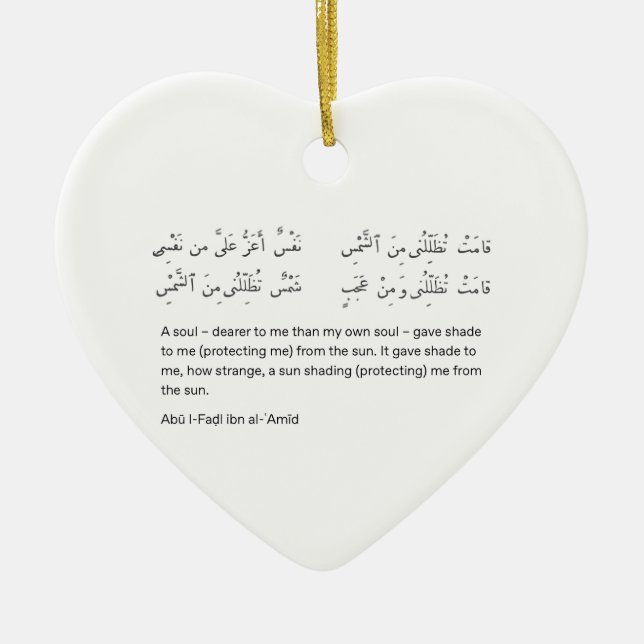 قامَتْ تُظَلِّلُنى مِنَ ٱلشَّمْسِ نَفْسٌ أَعَزُّ عَلَىَّ من نَفْسِى
قامَتْ تُظَلِّلُنى وَمِنْ عَجَبٍ شَمْسٌ تُظَلِّلُنى مِنَ ٱلشَّمْسِ
A soul – dearer to me than my own soul – gave shade
to me (protecting me) from the sun. It gave shade to
me, how strange, a sun shading (protecting) me from
the sun.
Abū l-Faḍl ibn al-ʿAmīd